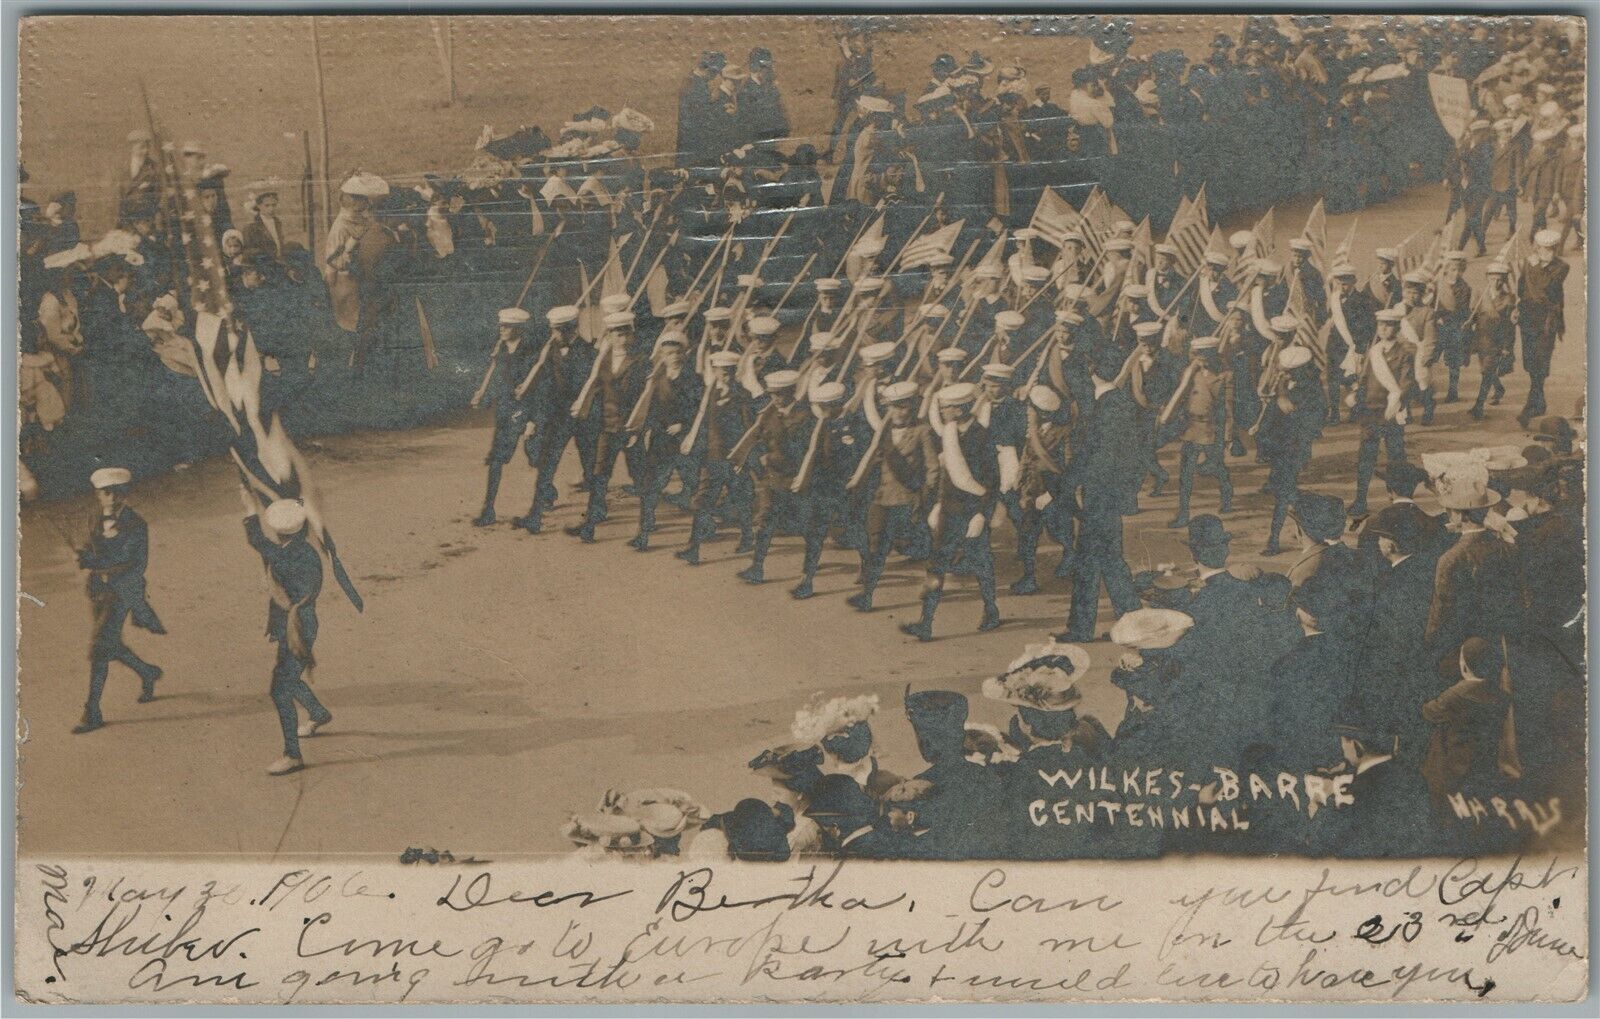 WILKES-BARRE
CENTENNIAL
HARRIS
May 30. 1906. Dear Bertha. Can you find Capt.
Come go to Europe with me on the 23rd of June
Am going with a party & would love to have you,